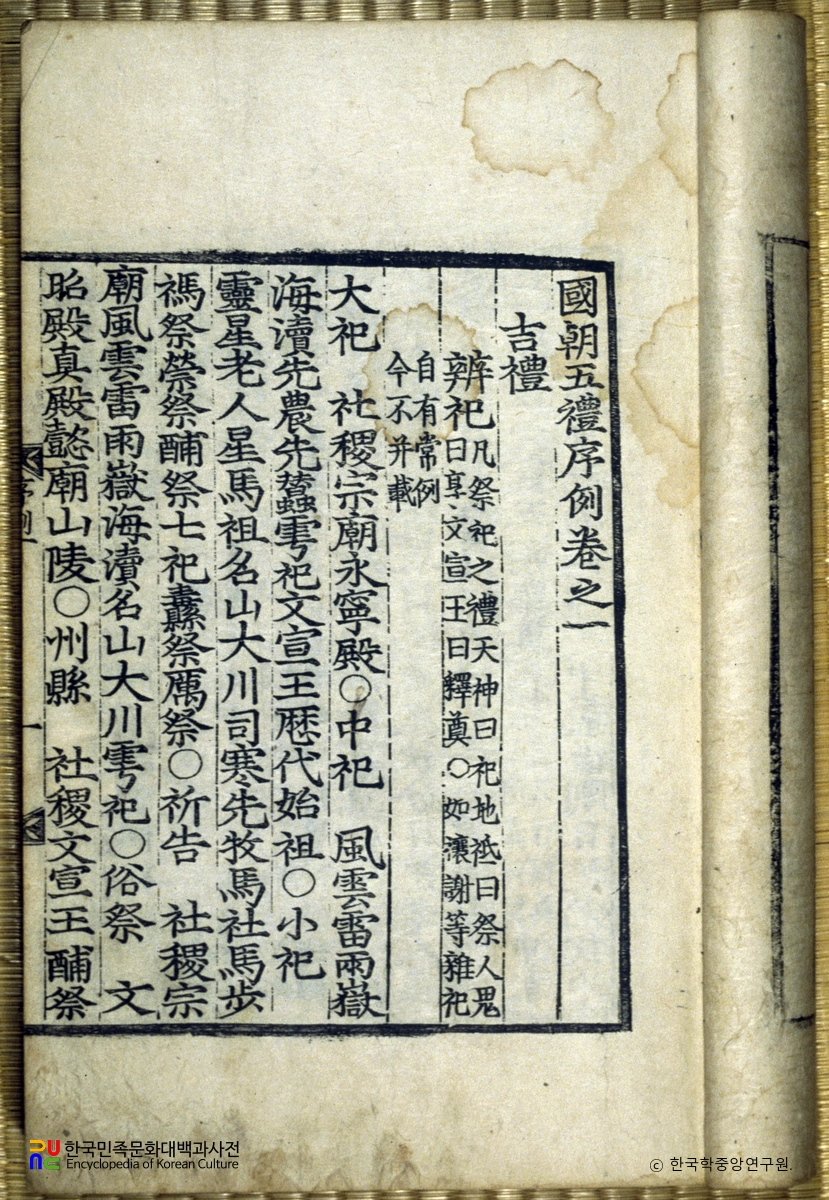 國朝五禮序例卷之一
吉禮
辨祀凡祭祀之禮天神曰祀地祗曰祭人鬼
曰享文宣王曰釋奠○如瀼謝等雜祀
自有常例
今不并載
大祀 社稷宗廟永寧殿○中祀 風雲雷雨嶽
海瀆先農先蠶雩祀文宣王厯代始祖○小祀
靈星老人星馬祖名山大川司寒先牧馬社馬步
禡祭禜祭酺祭七祀纛祭厲祭○祈告 社稷宗
廟風雲雷雨嶽海瀆名山大川雩祀○俗祭 文
昭殿真殿懿廟山陵○州縣 社稷文宣王酺祭
한국민족문화대백과사전
Encyclopedia of Korean Culture
© 한국학중앙연구원.